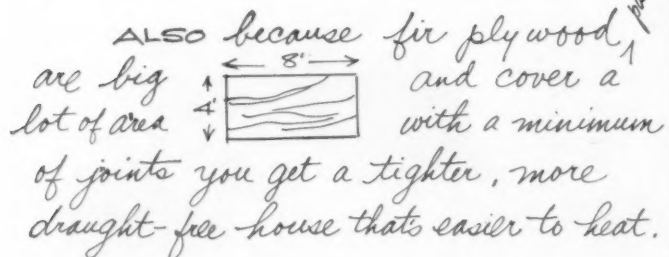 ALSO because fir plywood
8'
are big 4' and cover a
lot of area with a minimum
of joints you get a tighter, more
draught-free house that's easier to heat.